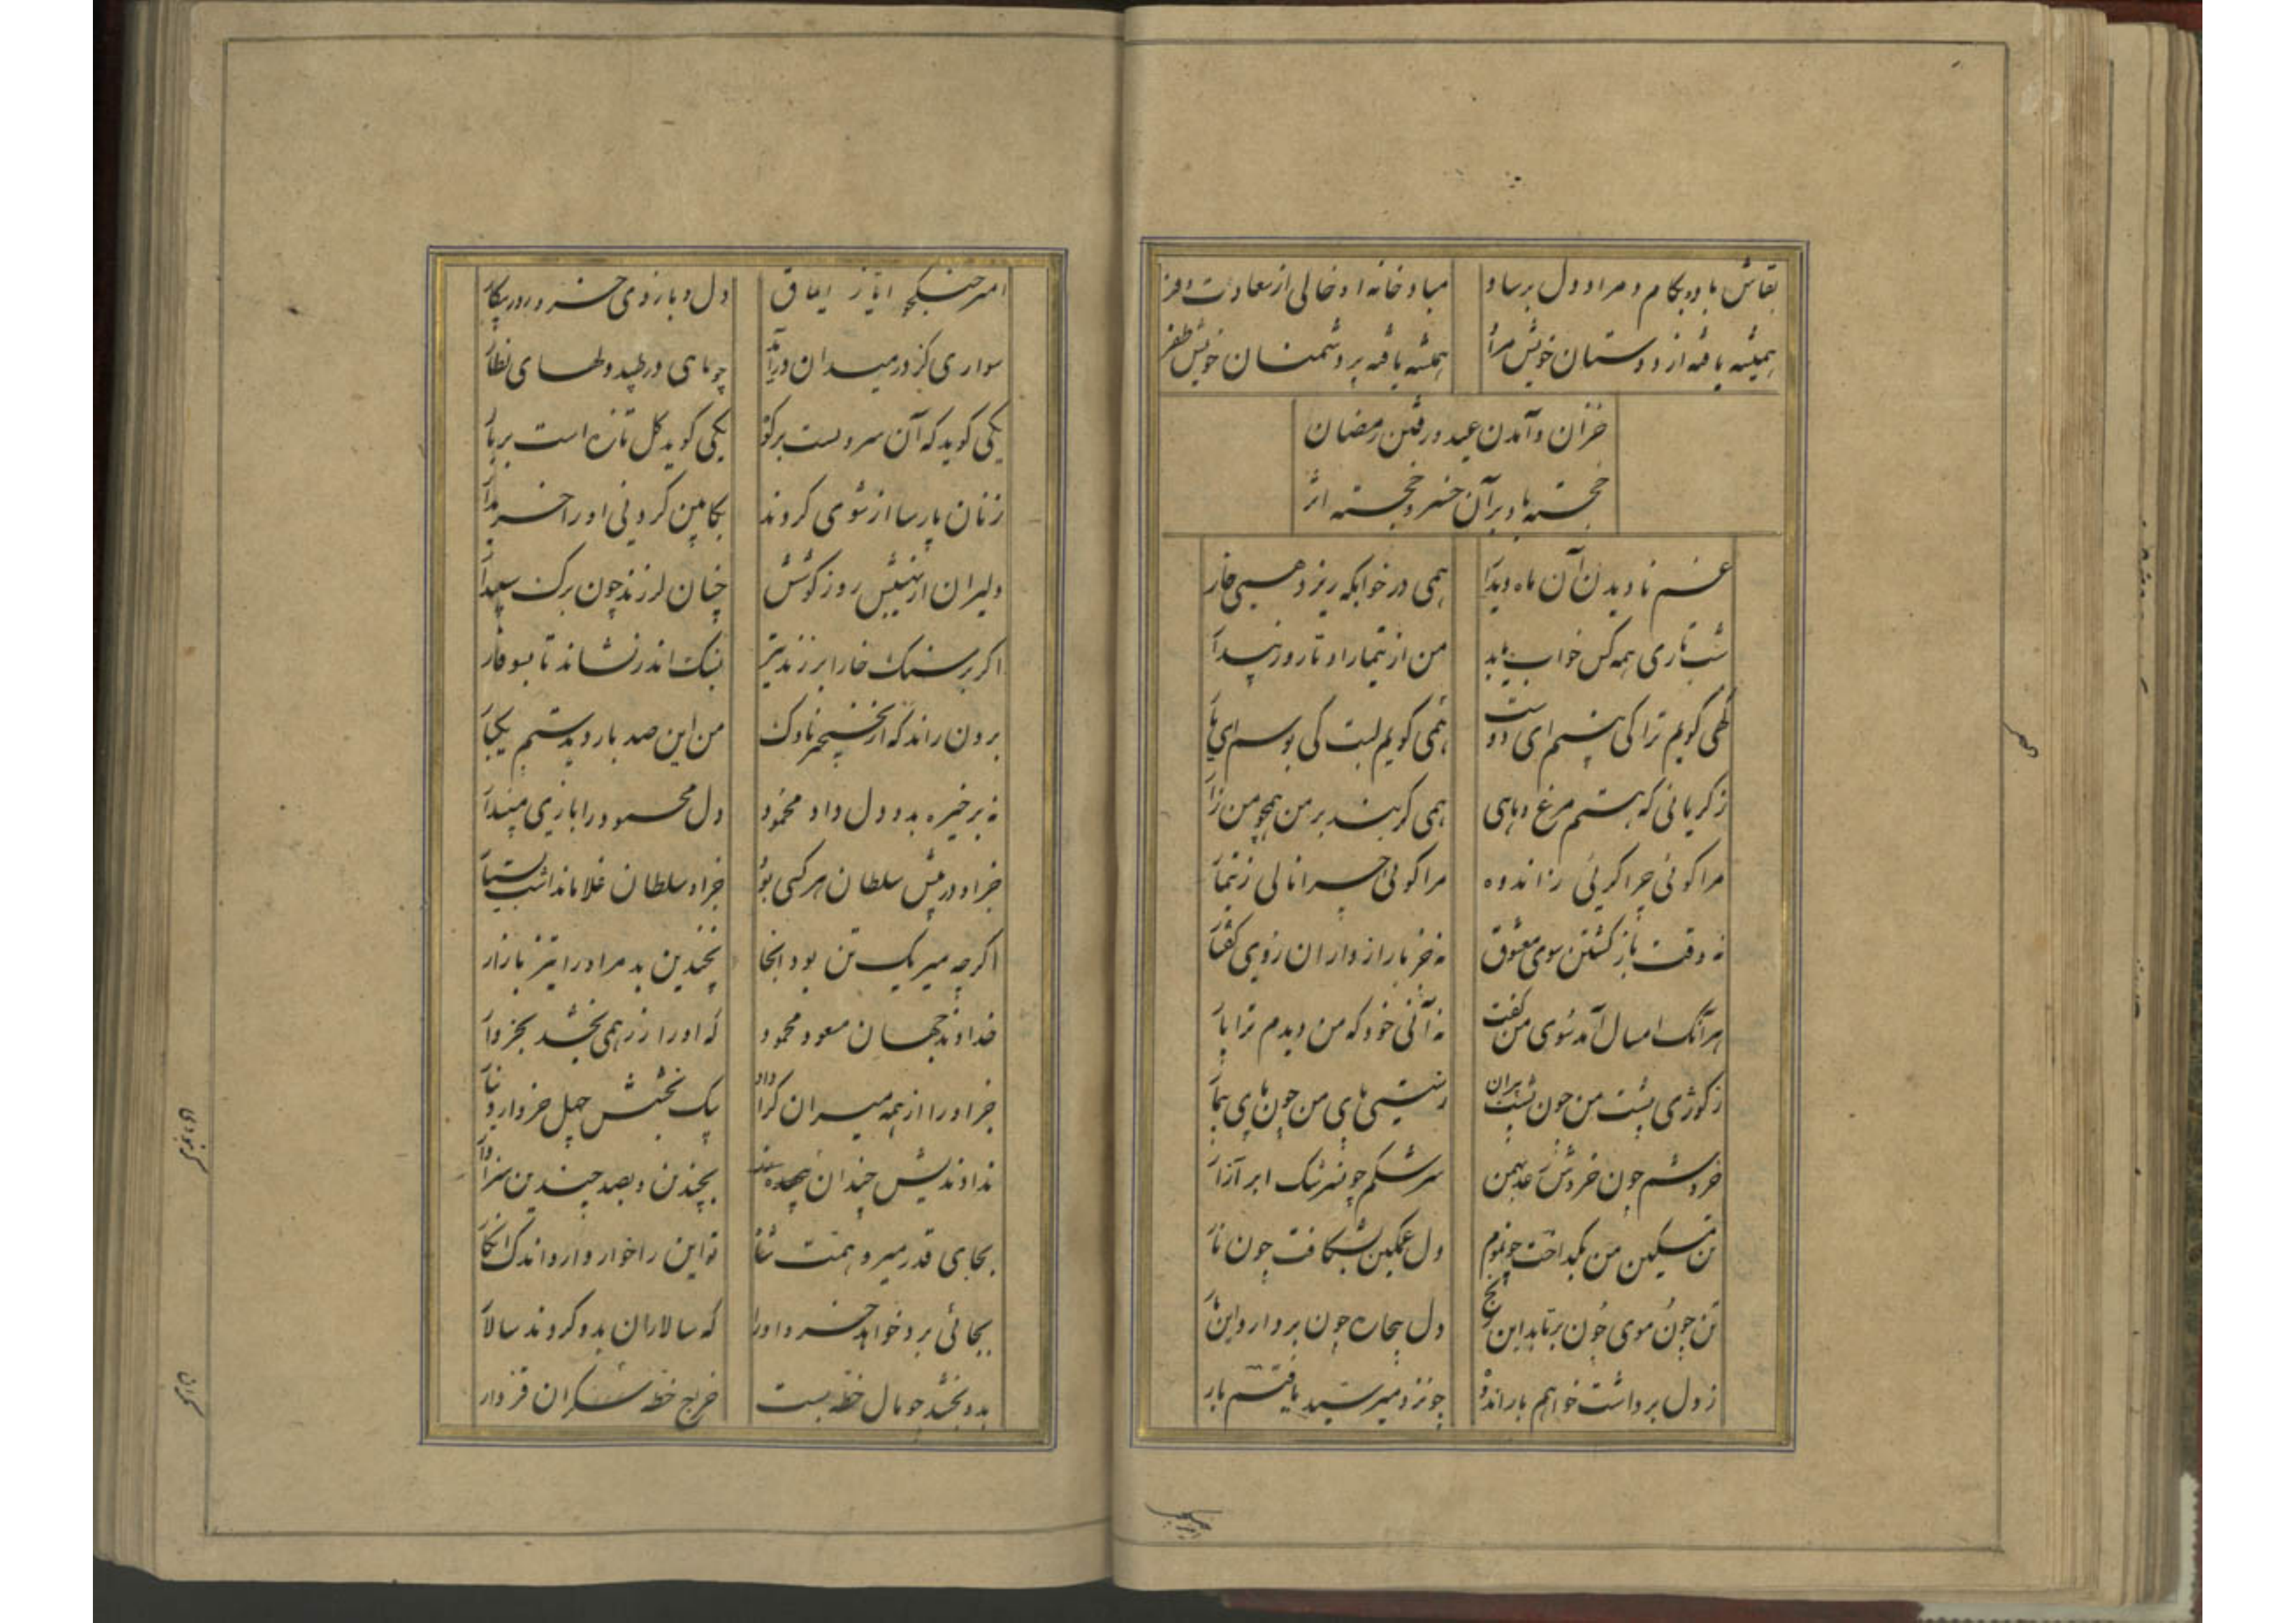 بقاش باد و بکام و مراد دل برساد مباد خانه او خالی از سعادت و فر
همیشه یافته از دوستان خویش مراد همیشه یافته بر دشمنان خویش ظفر
خزان و آمدن عید و رفتن رمضان
خجسته باد بر آن خسرو خجسته اثر
غم نادیدن آن ماه دیدار همی در خوابکه ریزد همی خار
شب تاری همه کس خواب یابد من از تیمار او تا روز بیدار
کهی کویم ترا کی بینم ای دوست همی کویم لبت کی بوسم ای یار
ز کریانی که هستم مرغ و ماهی همی کریند بر من همچو من زار
مرا کوئی چرا کریی ز اندوه مرا کوئی چرا نالی ز تیمار
نه وقت باز کشتن سوی معشوق نه جز با رازداران روی کفتار
هر آنک امسال آمد سوی من کفت نه آنی خود که من دیدم ترا پار
ز کوژی پشت من چون پشت پیران ز سستی پای من چون پای بیمار
خروشم چون خروش رعد بهمن سرشکم چو سرشک ابر آزار
تن مسکین من بکداخت چو موم دل غمکین بشکافت چون نار
تن چون موی چون برتابد این رنج دل بیچاره چون بردارد این بار
ز دل برداشت خواهم بار اندوه چو نزد میر سید یافتم بار
امیر جنکجو ایاز ایماق دل و بازوی خسرو روز پیکار
سواری کز در میدان درآید چو ماهی درطپد دلهای نظار
یکی کوید که آن سروست بر کوه یکی کوید کل تازه است بر بار
زنان پارسا از شوی کردند بکابین کردنی او را خریدار
دلیران از نهیبش روز کوشش چنان لرزند چون برک سپیدار
اکر بر سنک خارا بر زند تیر بسنک اندر نشاند تا بسوفار
برون راند که از نخجیر ناوک من این صد بار دیدستم نه یکبار
نه بر خیره بدو دل داد محمود دل محمود را بازی مپندار
جز او در پیش سلطان هر کسی بود جز او سلطان غلامان داشت بسیار
اکر چه میر یک تن بود آنجا نچندین بد مر او را تیز بازار
خداوند جهان مسعود محمود که او را زر همی بخشد بخروار
جز او را از همه میران کرا داد بیک بخشش چهل خروار دینار
بچندین و بصد چندین سزاوار
بجای قدر میر و همت شاه تو این را خوار دار و اندک انکار
بجائی برد خواهد خسرو او را که سالاران بدو کردند سالار
بدو بخشد چو مال خطه بست خراج خطه مکران و قزدار